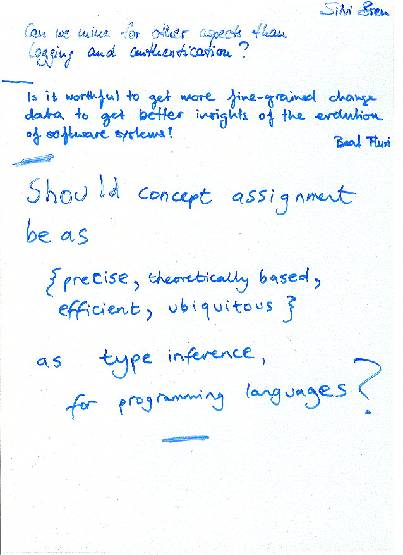 Silvi Breu
Can we mine for other aspects than
logging and authentication?
Is it worthful to get more fine-grained change
data to get better insights of the evolution
of software systems?
Beat Fluri
Should concept assignment
be as
{precise, theoretically based,
efficient, ubiquitous}
as type inference,
for programming languages?